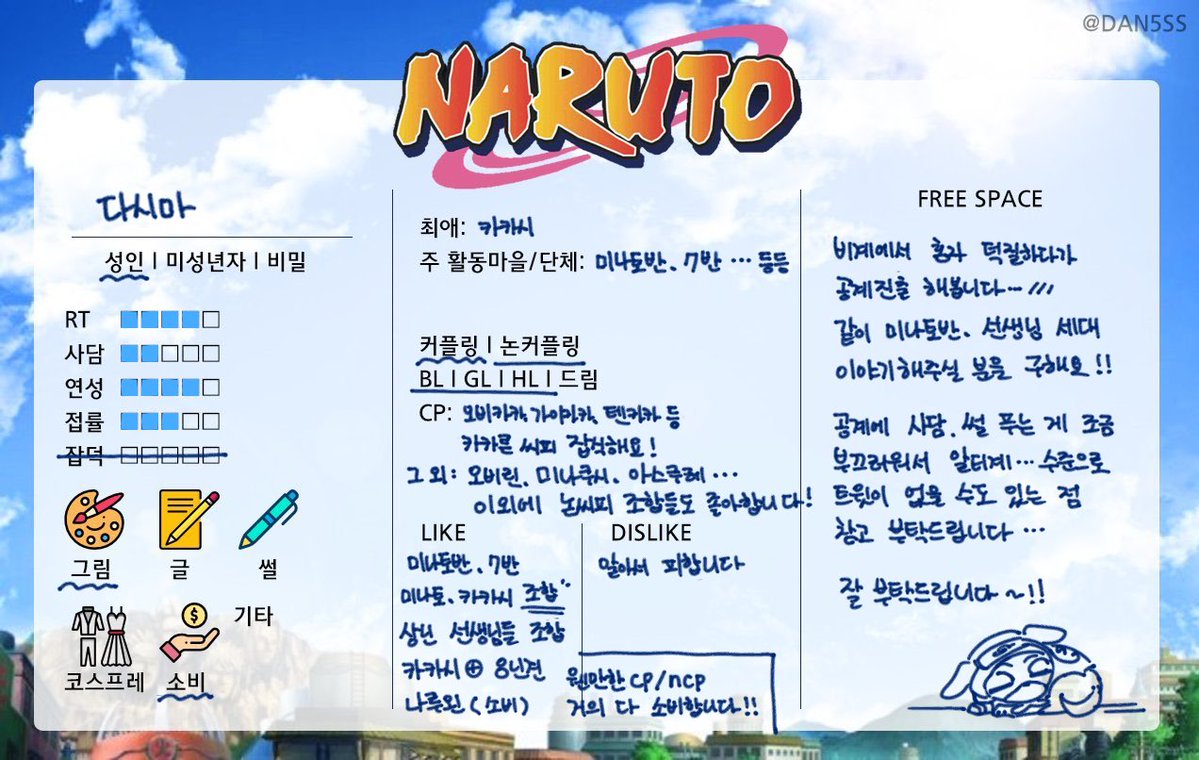 @DAN5SS
NARUTO
다시마
성인 | 미성년자 | 비밀
RT
사담
연성
접률
잡덕
그림
글
썰
코스프레
소비
기타
최애: 카카시
주 활동마을/단체: 미나토반. 7반 … 등등
커플링 | 논커플링
BL | GL | HL | 드림
CP: 오비카카, 가이카카, 텐카카 등
카카른 씨피 잡식해요!
그 외: 오비린. 미나쿠시. 아스쿠레 …
이외에 논씨피 조합들도 좋아합니다!
LIKE
미나토반. 7반
미나토. 카카시 조합
상닌 선생님들 조합
카카시 ⊕ 8닌견
나루원 (소비)
DISLIKE
알아서 피합니다
웬만한 CP/ncp
거의 다 소비합니다!!
FREE SPACE
비계에서 혼자 덕질하다가
공계진출 해봅니다… ///
같이 미나토반. 선생님 세대
이야기해주실 분을 구해요!!
공계에 사담. 썰 푸는 게 조금
부끄러워서 알티계… 수준으로
트윗이 없을 수도 있는 점
참고 부탁드립니다 …
잘 부탁드립니다 ~!!